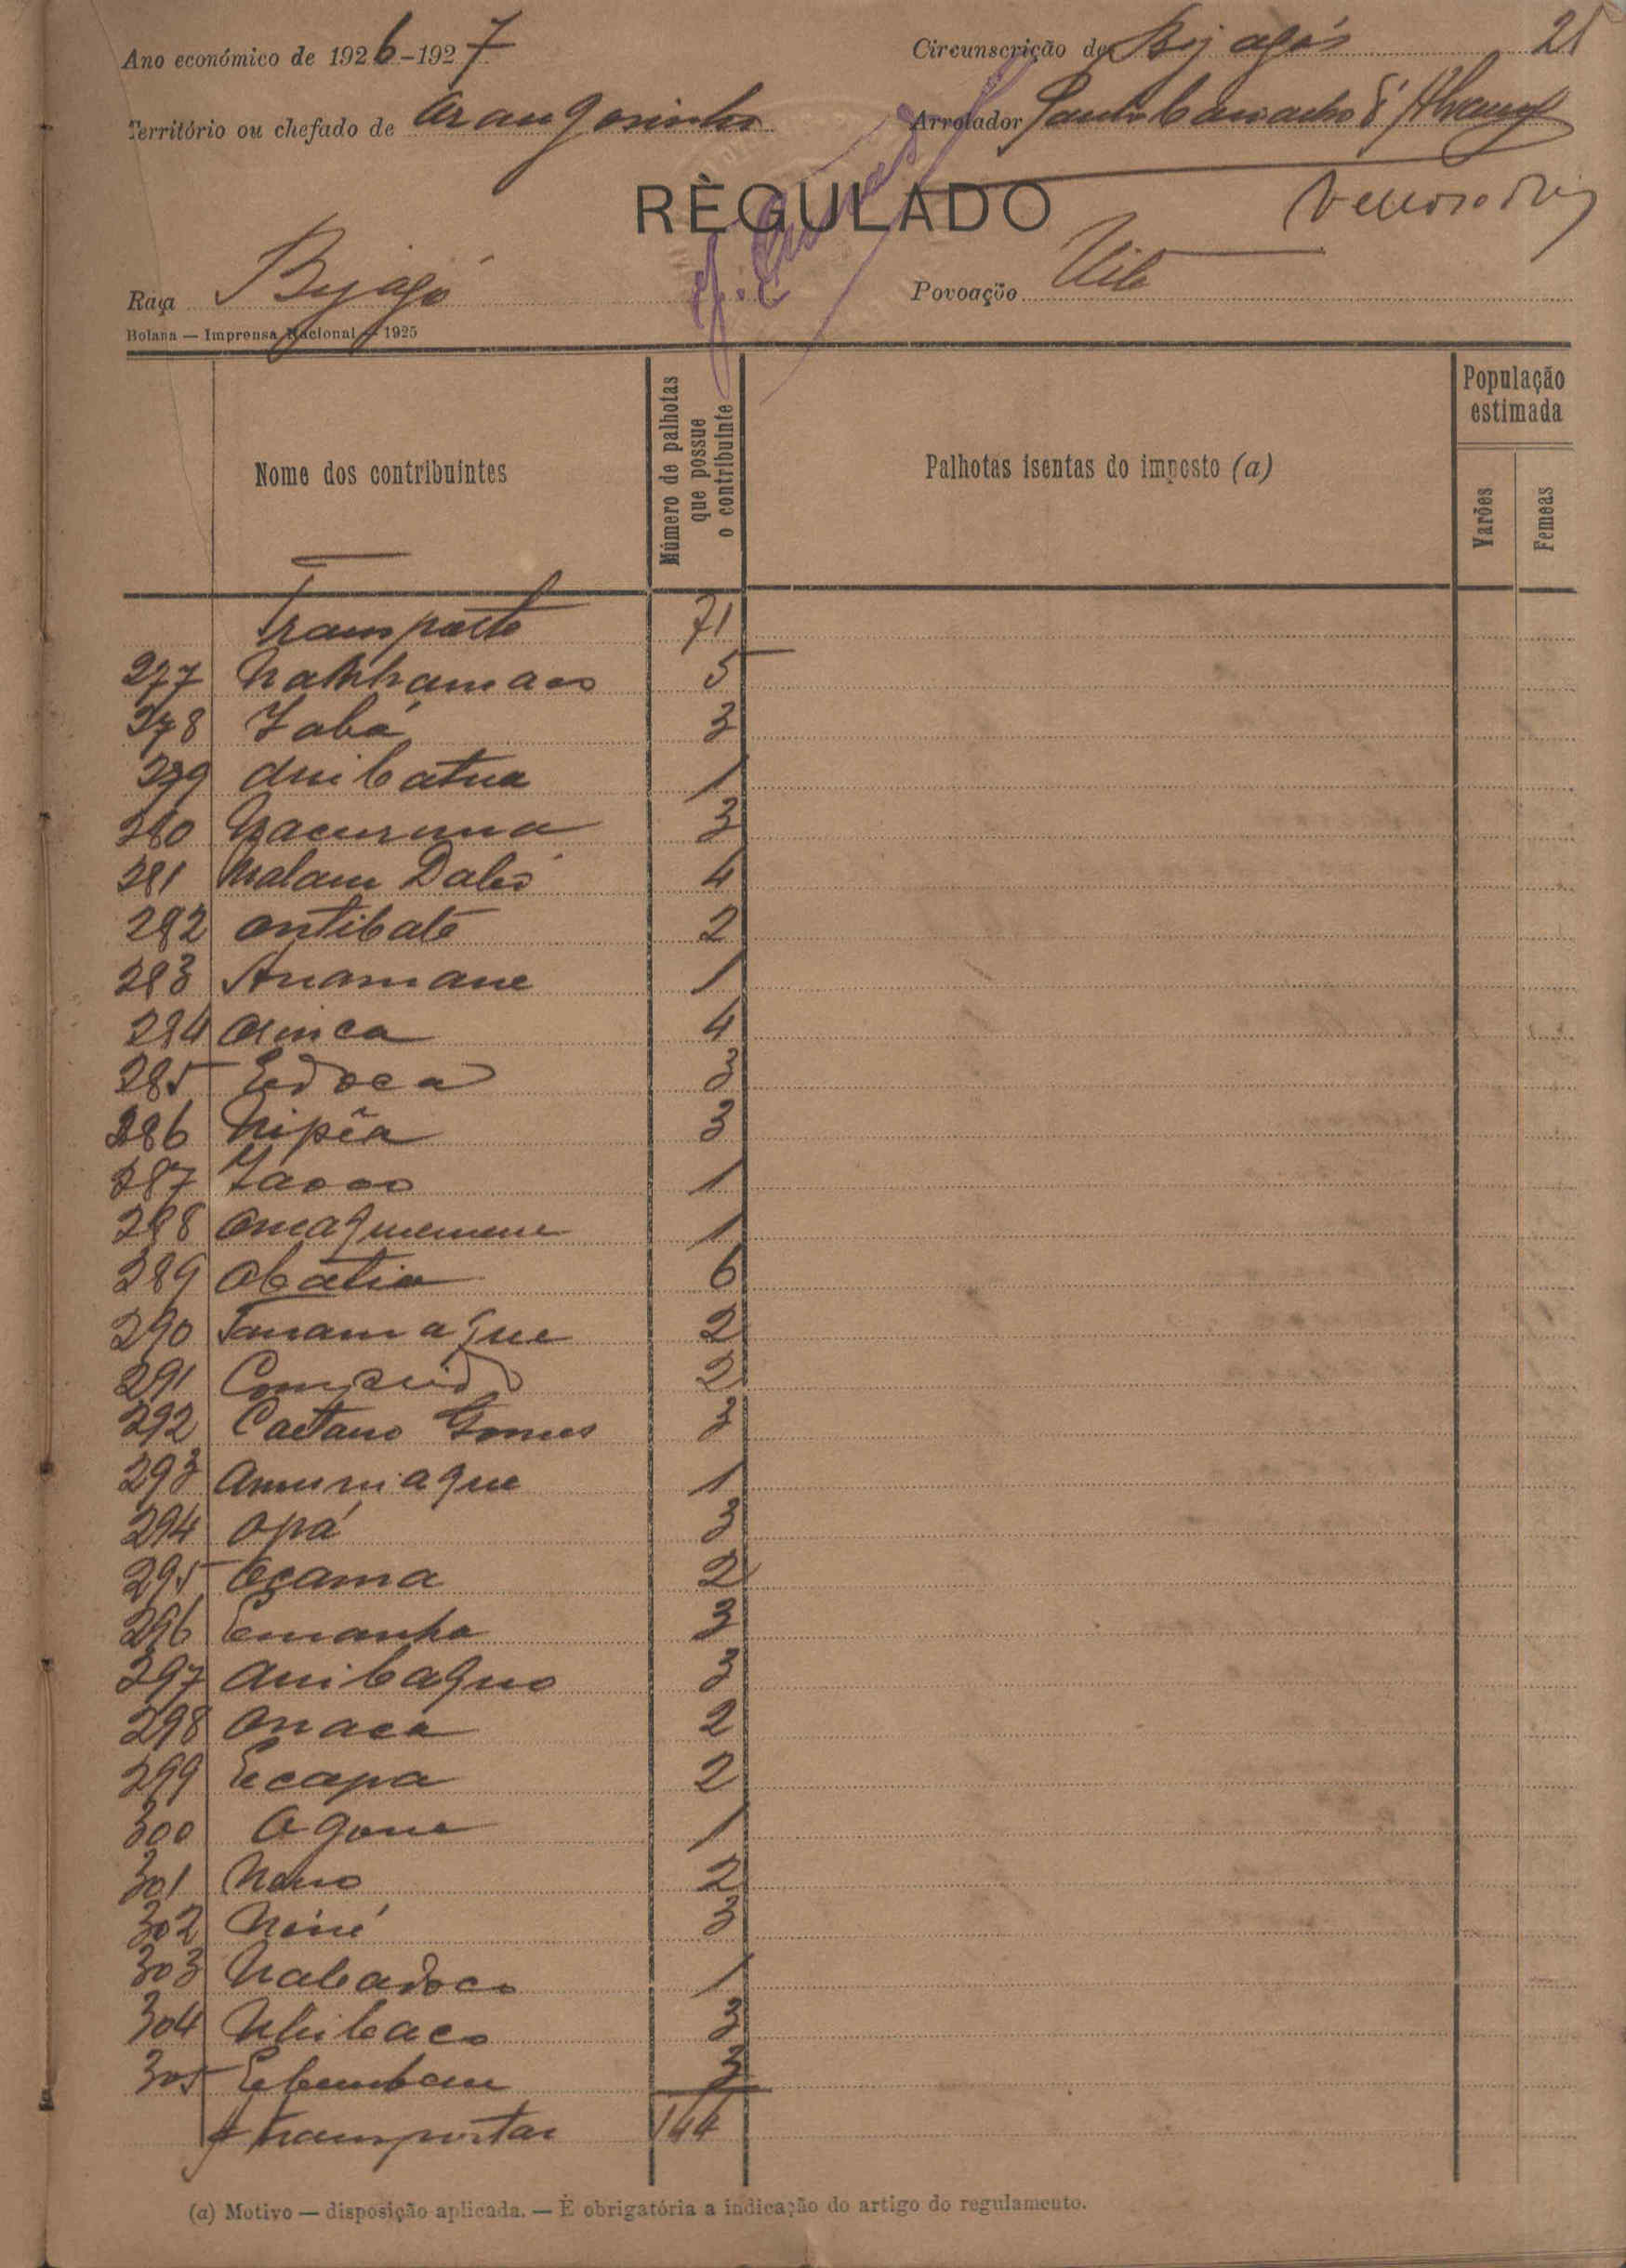 Ano económico de 1926-1927
Circunscrição de Bijagós 21
Território ou chefado de Orangosinho
Arrolador
RÈGULADO
Raça Bijagó
Povoação Uite
Bolana — Imprensa Nacional — 1925
Nome dos contribuintes
Número de palhotas que possue o contribuinte
Palhotas isentas do imposto (a)
População estimada
Varões
Femeas
Transporte 71
277 5
278 Jabá 3
279 Anibatua 1
280 Nacuruma 3
281 Malam Dabó 4
282 Ontibate 2
283 Anamane 1
284 Orinca 4
285 Eudoca 3
286 Nipêa 3
287 1
288 1
289 Obatia 6
290 Tanamaque 2
291 2
292 Caetano Gomes 3
293 Anumaque 1
294 Opá 3
295 Ocama 2
296 Emanha 3
297 Anibaque 3
298 Onaca 2
299 Ecapa 2
300 Ogane 1
301 Nano 2
302 Niné 3
303 Nabadoco 1
304 Nhibaco 3
305 3
A transportar 144
(a) Motivo — disposição aplicada. — É obrigatória a indicação do artigo do regulamento.